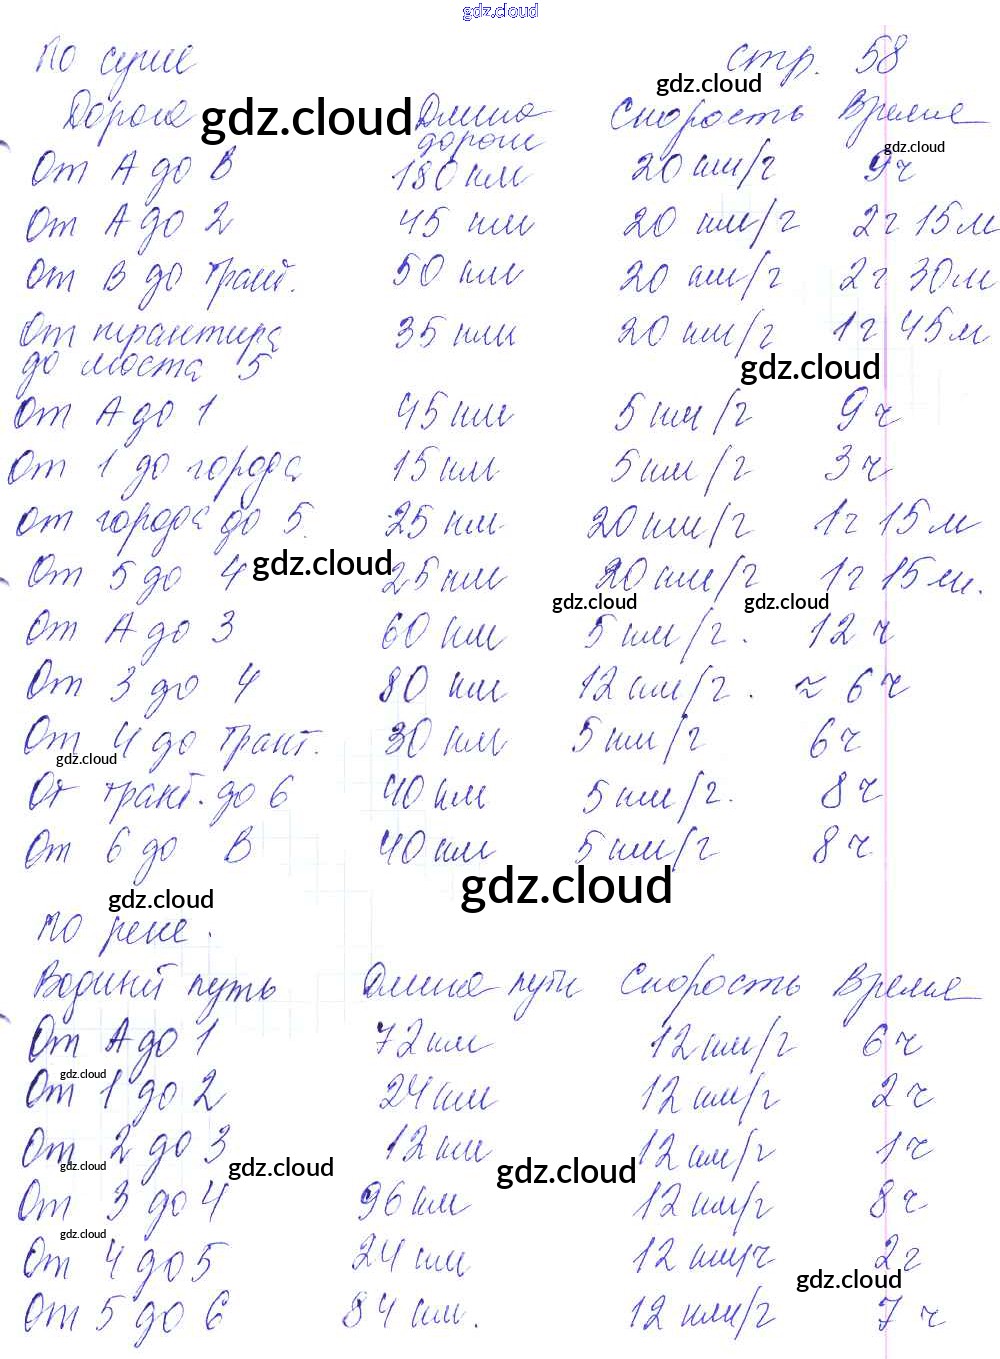 gdz.cloud
По суше стр. 58
gdz.cloud
Дорога gdz.cloud Длина дороги Скорость Время
gdz.cloud
От А до В 180 км 20 км/ч 9ч
От А до 2 45 км 20 км/ч 2ч 15м
От В до тракт. 50 км 20 км/ч 2ч 30м
От трактира до моста 5 35 км 20 км/ч 1ч 45м
gdz.cloud
От А до 1 45 км 5 км/ч 9ч
От 1 до города 15 км 5 км/ч 3ч
от города до 5. 25 км 20 км/ч 1ч 15м
От 5 до 4 gdz.cloud 25 км 20 км/ч 1ч 15м.
gdz.cloud gdz.cloud
От А до 3 60 км 5 км/ч. 12 ч
От 3 до 4 80 км 12 км/ч. ≈ 6ч
От 4 до тракт. 30 км 5 км/ч 6ч
gdz.cloud
От тракт. до 6 40 км 5 км/ч. 8ч
От 6 до В 40 км 5 км/ч 8ч
gdz.cloud
gdz.cloud
По реке.
Водный путь Длина пути Скорость Время
От А до 1 72 км 12 км/ч 6ч
gdz.cloud
От 1 до 2 24 км 12 км/ч 2ч
От 2 до 3 12 км 12 км/ч 1ч
gdz.cloud gdz.cloud gdz.cloud
От 3 до 4 96 км 12 км/ч 8ч
gdz.cloud
От 4 до 5 24 км 12 км/ч 2ч
gdz.cloud
От 5 до 6 84 км. 12 км/ч 7 ч